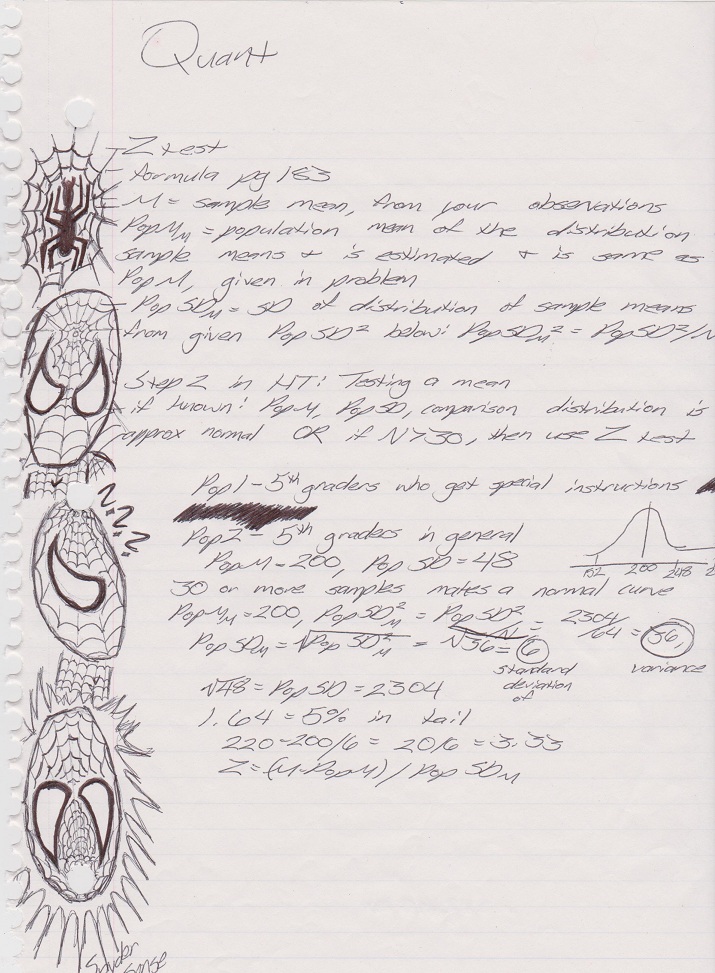 Quant
Z test
formula pg 183
M = sample mean, from your observations
Pop M_M = population mean of the distribution
sample means & is estimated & is same as
Pop M, given in problem
Pop SD_M = SD of distribution of sample means
from given Pop SD² below: Pop SD_M² = Pop SD²/N
Step 2 in HT: Testing a mean
if known: Pop M, Pop SD, comparison distribution is
approx normal OR if N>30, then use Z test
Z Z Z
Pop 1 - 5th graders who get special instructions
Pop 2 - 5th graders in general
Pop M = 200, Pop SD = 48
152 200 248
30 or more samples makes a normal curve
Pop M_M = 200, Pop SD_M² = Pop SD²/N = 2304/64 = 36,
Pop SD_M = √Pop SD_M² = √36 = 6
standard deviation of
variance
√48 = Pop SD = 2304
1.64 = 5% in tail
220-200/6 = 20/6 = 3.33
Z = (M-Pop M) / Pop SD_M
Spyder
Sense